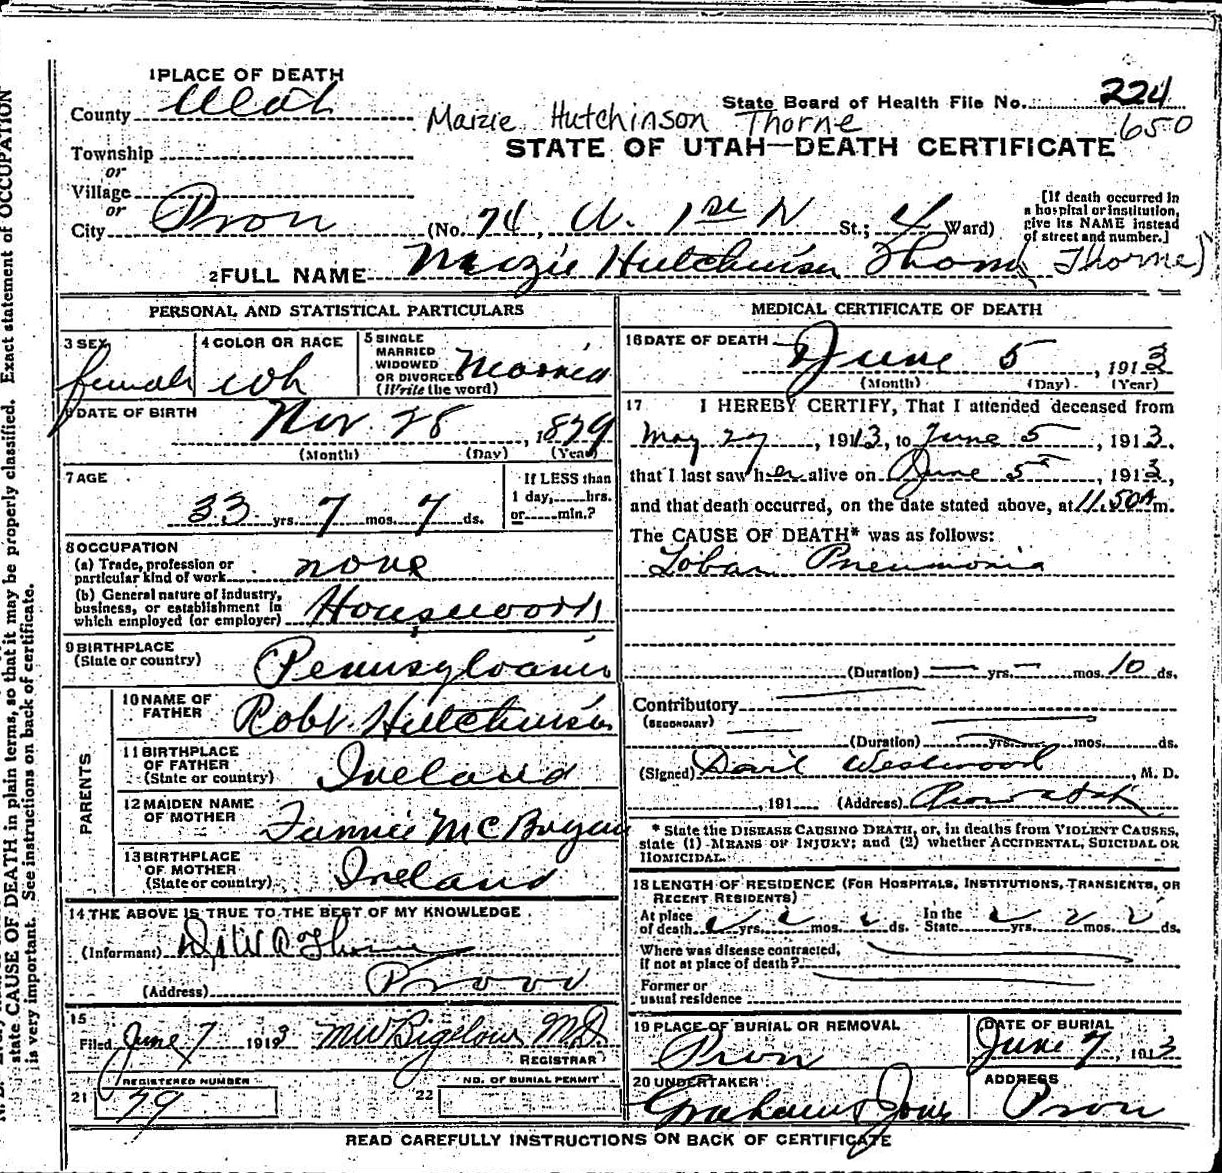 1 PLACE OF DEATH
County Utah
State Board of Health File No. 224
650
Marzie Hutchinson Thorne
STATE OF UTAH—DEATH CERTIFICATE
Township
or
Village
or
City Provo (No. 74, W. 1st N St.; 4 Ward)
[If death occurred in
a hospital or institution,
give its NAME instead
of street and number.]
2 FULL NAME Marzie Hutchinson Thorne Thorne)
PERSONAL AND STATISTICAL PARTICULARS
3 SEX female
4 COLOR OR RACE wh
5 SINGLE
MARRIED
WIDOWED
OR DIVORCED
(Write the word) Married
6 DATE OF BIRTH
Nov. 28, 1879
(Month) (Day) (Year)
7 AGE
33 yrs. 7 mos. 7 ds.
If LESS than
1 day,......hrs.
or......min.?
8 OCCUPATION
(a) Trade, profession or
particular kind of work none
(b) General nature of industry,
business, or establishment in
which employed (or employer) Housework
9 BIRTHPLACE
(State or country) Pennsylvania
PARENTS
10 NAME OF
FATHER Robt. Hutchinson
11 BIRTHPLACE
OF FATHER
(State or country) Ireland
12 MAIDEN NAME
OF MOTHER Fannie McBogan
13 BIRTHPLACE
OF MOTHER
(State or country) Ireland
14 THE ABOVE IS TRUE TO THE BEST OF MY KNOWLEDGE
(Informant) Thorne
(Address) Provo
15
Filed June 7 1913 MW Bigelow M.D.
REGISTRAR
REGISTERED NUMBER
21 79
NO. OF BURIAL PERMIT
22
MEDICAL CERTIFICATE OF DEATH
16 DATE OF DEATH
June 5, 1913
(Month) (Day) (Year)
17 I HEREBY CERTIFY, That I attended deceased from
May 27, 1913, to June 5, 1913,
that I last saw her alive on June 5, 1913,
and that death occurred, on the date stated above, at 11.50 A m.
The CAUSE OF DEATH* was as follows:
Lobar Pneumonia
(Duration) — yrs. — mos. 10 ds.
Contributory
(SECONDARY)
(Duration) yrs. mos. ds.
(Signed) David Westwood, M. D.
, 191 (Address) Provo Utah
* State the DISEASE CAUSING DEATH, or, in deaths from VIOLENT CAUSES,
state (1) MEANS OF INJURY; and (2) whether ACCIDENTAL, SUICIDAL OR
HOMICIDAL.
18 LENGTH OF RESIDENCE (FOR HOSPITALS, INSTITUTIONS, TRANSIENTS, OR
RECENT RESIDENTS)
At place
of death yrs. mos. ds.
In the
State yrs. mos. ds.
Where was disease contracted,
if not at place of death?
Former or
usual residence
19 PLACE OF BURIAL OR REMOVAL
Provo
DATE OF BURIAL
June 7, 1913
20 UNDERTAKER
Graham & Jones
ADDRESS
Provo
READ CAREFULLY INSTRUCTIONS ON BACK OF CERTIFICATE
state CAUSE OF DEATH in plain terms, so that it may be properly classified. Exact statement of OCCUPATION
is very important. See instructions on back of certificate.